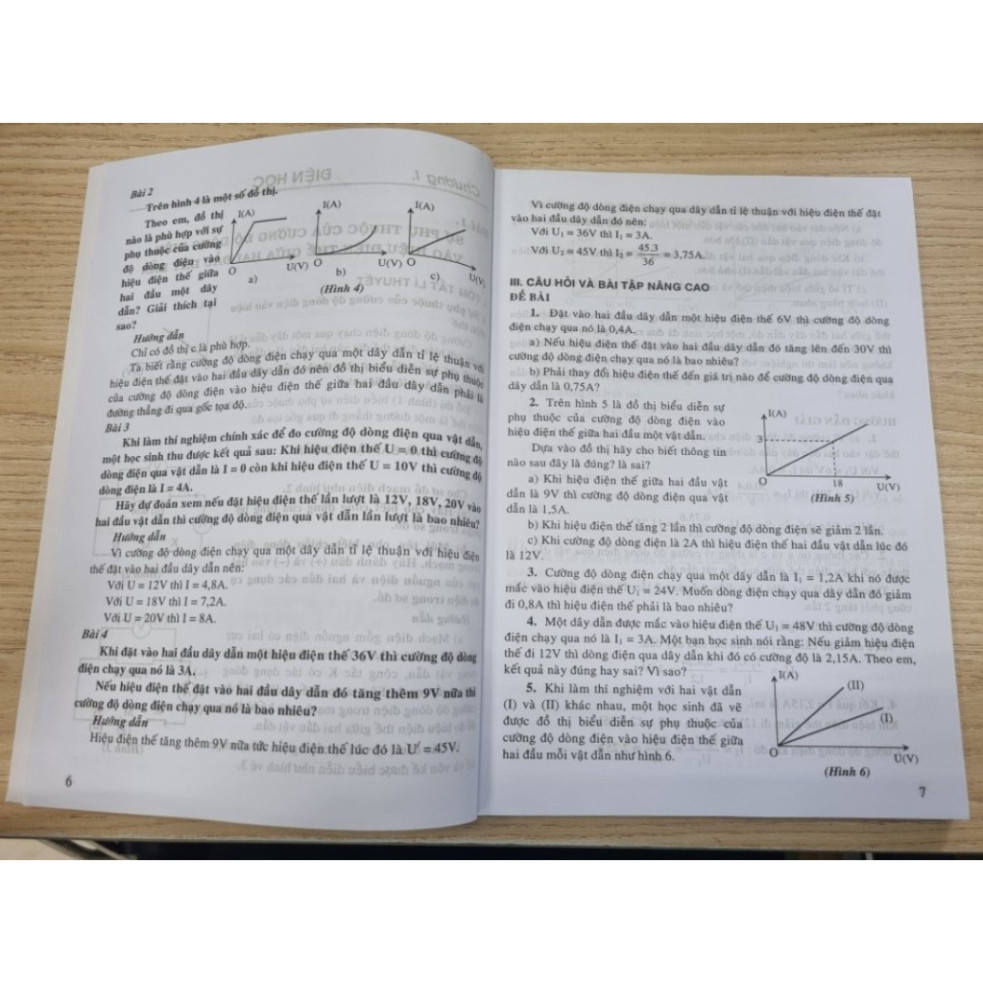 Bài 2
Trên hình 4 là một số đồ thị.
Theo em, đồ thị
nào là phù hợp với sự
phụ thuộc của cường
độ dòng điện vào
hiệu điện thế giữa
hai đầu một dây
dẫn? Giải thích tại
sao?
I(A)
O
U(V)
a)
I(A)
O
U(V)
b)
I(A)
O
U(V)
c)
(Hình 4)
Hướng dẫn
Chỉ có đồ thị c là phù hợp.
Ta biết rằng cường độ dòng điện chạy qua một dây dẫn tỉ lệ thuận với
hiệu điện thế đặt vào hai đầu dây dẫn đó nên đồ thị biểu diễn sự phụ thuộc
của cường độ dòng điện vào hiệu điện thế giữa hai đầu dây dẫn phải là
đường thẳng đi qua gốc tọa độ.
Bài 3
Khi làm thí nghiệm chính xác để đo cường độ dòng điện qua vật dẫn,
một học sinh thu được kết quả sau: Khi hiệu điện thế U = 0 thì cường độ
dòng điện qua vật dẫn là I = 0 còn khi hiệu điện thế U = 10V thì cường độ
dòng điện là I = 4A.
Hãy dự đoán xem nếu đặt hiệu điện thế lần lượt là 12V, 18V, 20V vào
hai đầu vật dẫn thì cường độ dòng điện qua vật dẫn lần lượt là bao nhiêu?
Hướng dẫn
Vì cường độ dòng điện chạy qua một dây dẫn tỉ lệ thuận với hiệu điện
thế đặt vào hai đầu dây dẫn nên:
Với U = 12V thì I = 4,8A.
Với U = 18V thì I = 7,2A.
Với U = 20V thì I = 8A.
Bài 4
Khi đặt vào hai đầu dây dẫn một hiệu điện thế 36V thì cường độ dòng
điện chạy qua nó là 3A.
Nếu hiệu điện thế đặt vào hai đầu dây dẫn đó tăng thêm 9V nữa thì
cường độ dòng điện chạy qua nó là bao nhiêu?
Hướng dẫn
Hiệu điện thế tăng thêm 9V nữa tức hiệu điện thế lúc đó là U' = 45V.
6
Vì cường độ dòng điện chạy qua dây dẫn tỉ lệ thuận với hiệu điện thế đặt
vào hai đầu dây dẫn đó nên:
Với U₁ = 36V thì I₁ = 3A.
Với U₂ = 45V thì I₂ = 45.3/36 = 3,75A.
III. CÂU HỎI VÀ BÀI TẬP NÂNG CAO
ĐỀ BÀI
1. Đặt vào hai đầu dây dẫn một hiệu điện thế 6V thì cường độ dòng
điện chạy qua nó là 0,4A.
a) Nếu hiệu điện thế đặt vào hai đầu dây dẫn đó tăng lên đến 30V thì
cường độ dòng điện chạy qua nó là bao nhiêu?
b) Phải thay đổi hiệu điện thế đến giá trị nào để cường độ dòng điện qua
dây dẫn là 0,75A?
2. Trên hình 5 là đồ thị biểu diễn sự
phụ thuộc của cường độ dòng điện vào
hiệu điện thế giữa hai đầu một vật dẫn.
Dựa vào đồ thị hãy cho biết thông tin
nào sau đây là đúng? là sai?
a) Khi hiệu điện thế giữa hai đầu vật
dẫn là 9V thì cường độ dòng điện qua vật
dẫn là 1,5A.
I(A)
3
O
18
U(V)
(Hình 5)
b) Khi hiệu điện thế tăng 2 lần thì cường độ dòng điện sẽ giảm 2 lần.
c) Khi cường độ dòng điện là 2A thì hiệu điện thế hai đầu vật dẫn lúc đó
là 12V.
3. Cường độ dòng điện chạy qua một dây dẫn là I₁ = 1,2A khi nó được
mắc vào hiệu điện thế U₁ = 24V. Muốn dòng điện chạy qua dây dẫn đó giảm
đi 0,8A thì hiệu điện thế phải là bao nhiêu?
4. Một dây dẫn được mắc vào hiệu điện thế U₁ = 48V thì cường độ dòng
điện chạy qua nó là I₁ = 3A. Một bạn học sinh nói rằng: Nếu giảm hiệu điện
thế đi 12V thì dòng điện qua dây dẫn khi đó có cường độ là 2,15A. Theo em,
kết quả này đúng hay sai? Vì sao?
5. Khi làm thí nghiệm với hai vật dẫn
(I) và (II) khác nhau, một học sinh đã vẽ
được đồ thị biểu diễn sự phụ thuộc của
cường độ dòng điện vào hiệu điện thế giữa
hai đầu mỗi vật dẫn như hình 6.
I(A)
(II)
(I)
O
U(V)
(Hình 6)
7